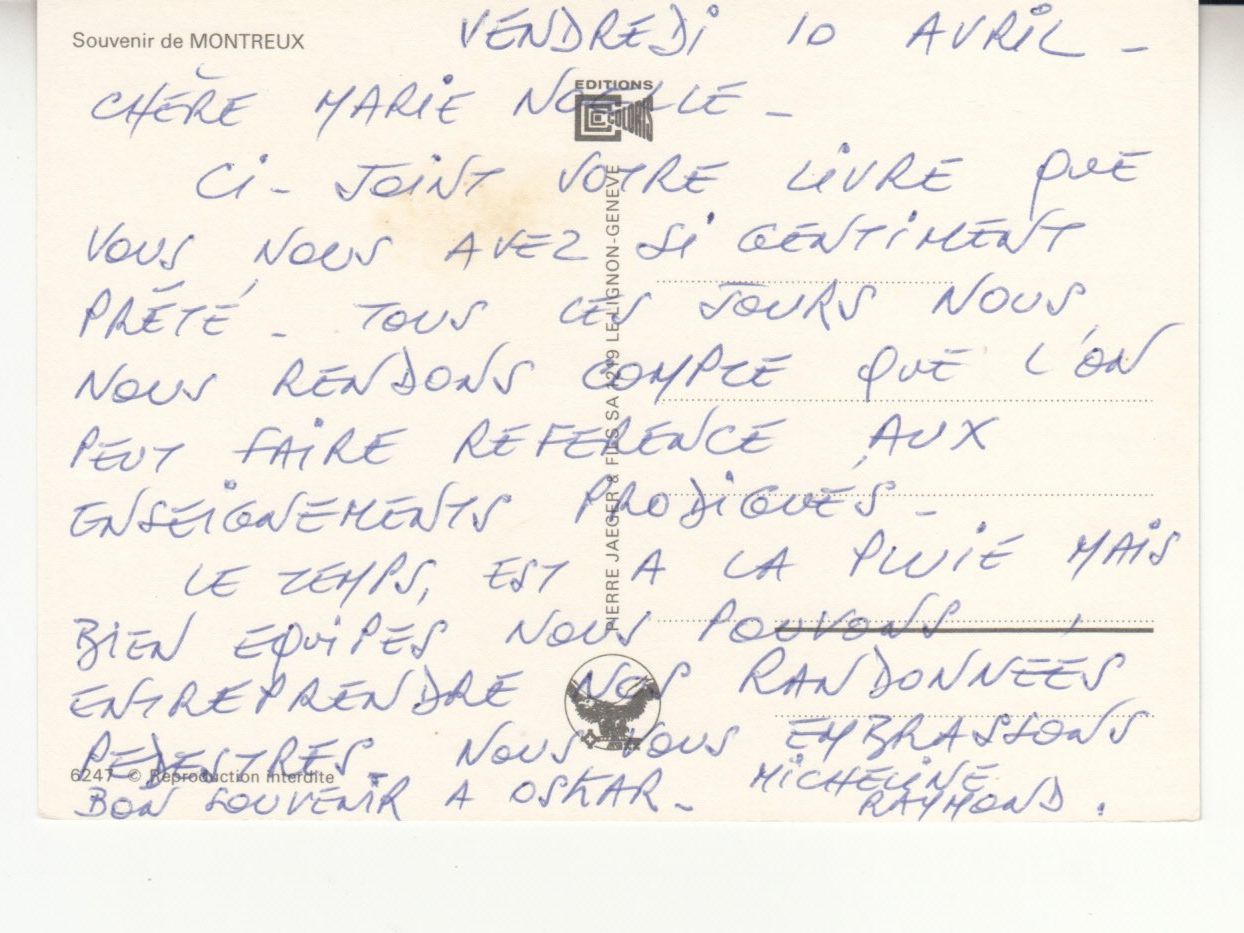 Souvenir de MONTREUX
VENDREDI 10 AVRIL -
CHÈRE MARIE NOELLE -
EDITIONS
COLORIS
CI - JOINT VOTRE LIVRE QUE
VOUS NOUS AVEZ SI GENTIMENT
PRÊTÉ - TOUS CES JOURS NOUS
NOUS RENDONS COMPTE QUE L'ON
PEUT FAIRE REFERENCE AUX
ENSEIGNEMENTS PRODIGUÉS -
LE TEMPS, EST A LA PLUIE MAIS
BIEN EQUIPES NOUS POUVONS
ENTREPRENDRE NOS RANDONNÉES
PEDESTRES - NOUS VOUS EMBRASSONS
BON SOUVENIR A OSKAR - MICHELINE
RAYMOND.
PIERRE JAEGER & FILS SA 1219 LE LIGNON-GENEVE
6247 © Reproduction interdite